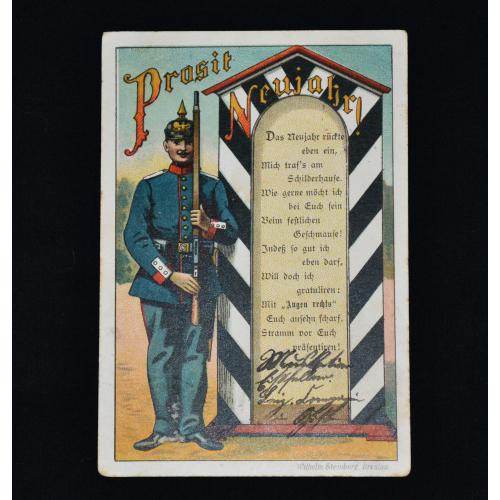 Prosit
Neujahr!
Das Neujahr rückte
eben ein,
Mich traf's am
Schilderhause.
Wie gerne möcht ich
bei Euch sein
Beim festlichen
Geschmause!
Indeß so gut ich
eben darf,
Will doch ich
gratuliren:
Mit „Augen rechts“
Euch ansehn scharf,
Stramm vor Euch
präsentiren!
Wilhelm Steinberg, Breslau.